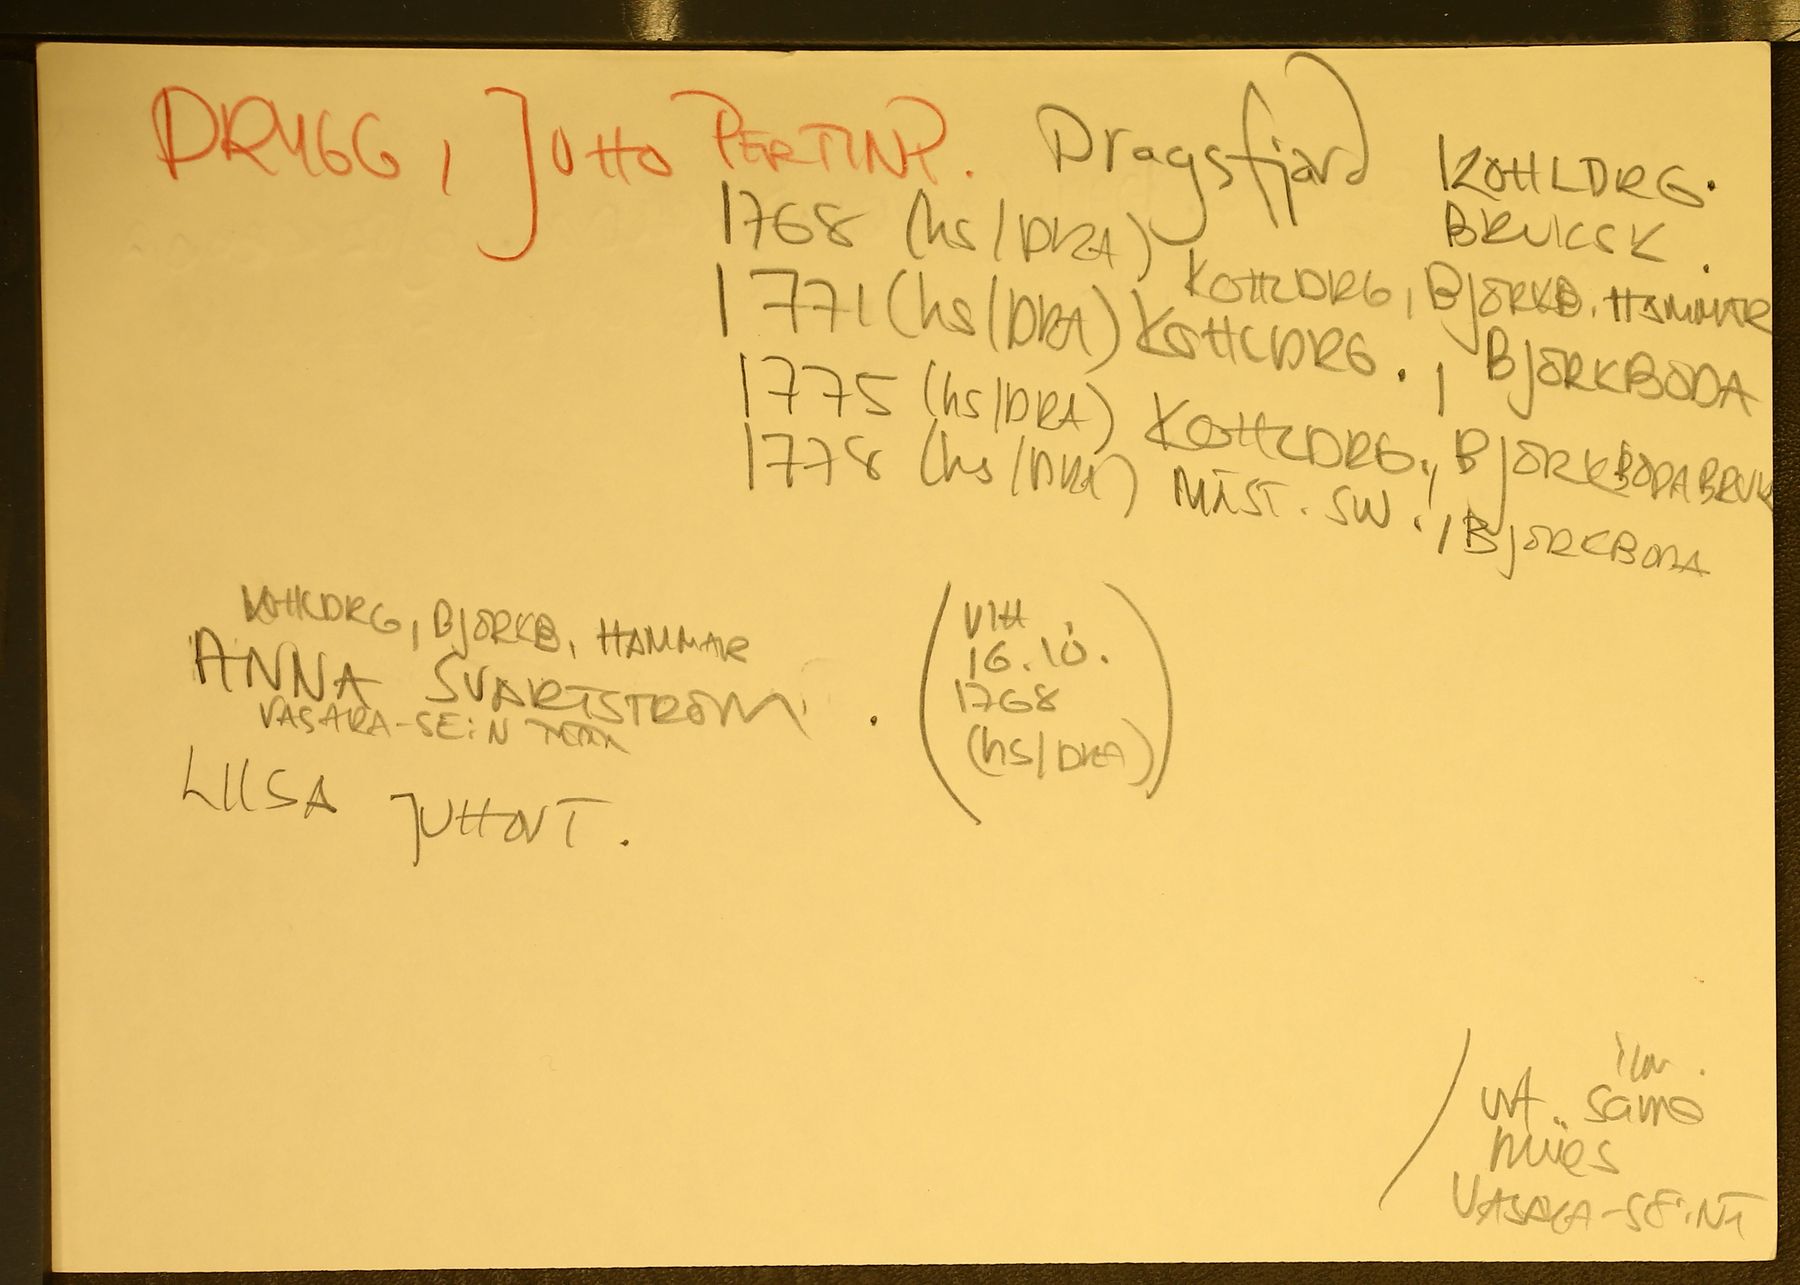 DRYGG, JUHO PERTINP. Dragsfjärd KOHLDRG.
BRUKSK.
1768 (hs/DRA) KOHLDRG, BJÖRKB. HAMMAR
1771 (hs/DRA) KOHLDRG., BJÖRKBODA
1775 (hs/DRA) KOHLDRG., BJÖRKBODA BRUK
1778 (hs/DRA) MÄST. SW., BJÖRKBODA
KOHLDRG, BJÖRKB. HAMMAR
ANNA SVARTSTRÖM.
VASARA-SEIN
LIISA JUHONT.
(VIH
16.10.
1768
(hs/DRA))
/ ilm.
vt. sama
mies
VASARA-SEINT